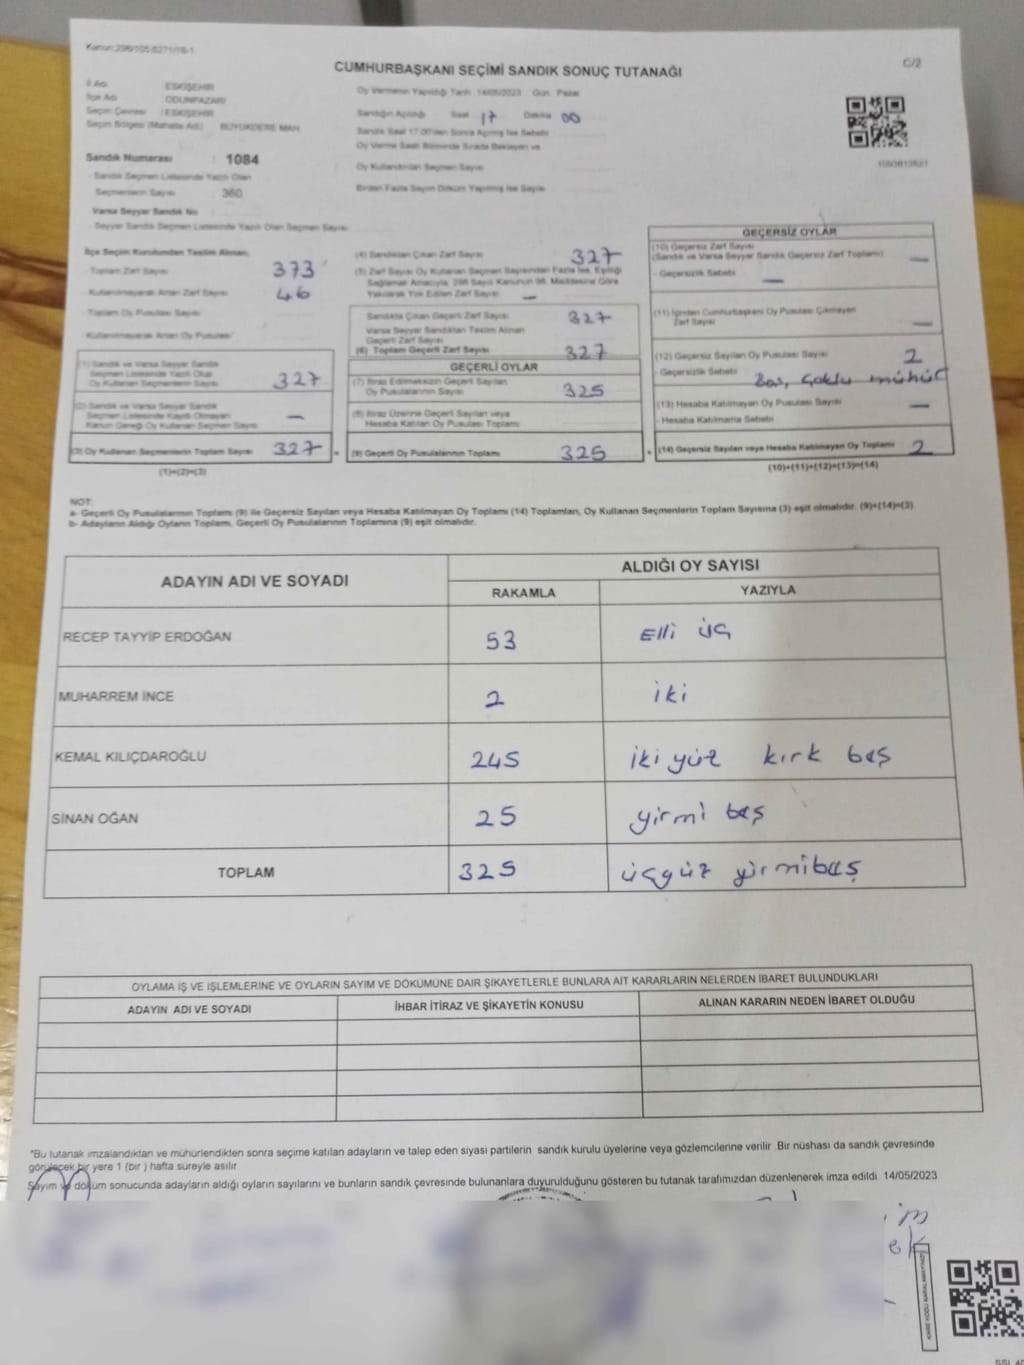 Kanun:298/105;6271/18-1
C/2
CUMHURBAŞKANI SEÇİMİ SANDIK SONUÇ TUTANAĞI
İl Adı ESKİŞEHİR
İlçe Adı ODUNPAZARI
Seçim Çevresi : ESKİŞEHİR
Seçim Bölgesi (Mahalle Adı) BÜYÜKDERE MAH.
Sandık Numarası : 1084
- Sandık Seçmen Listesinde Yazılı Olan
Seçmenlerin Sayısı 360
Varsa Seyyar Sandık No
- Seyyar Sandık Seçmen Listesinde Yazılı Olan Seçmen Sayısı
Oy Vermenin Yapıldığı Tarih: 14/05/2023 Gün: Pazar
Sandığın Açıldığı Saat 17 Dakika 00
Sandık Saat 17.00'den Sonra Açılmış İse Sebebi
Oy Verme Saati Bitiminde Sırada Bekleyen ve
Oy Kullandırılan Seçmen Sayısı
Birden Fazla Sayım Döküm Yapılmış İse Sayısı
İlçe Seçim Kurulundan Teslim Alınan;
- Toplam Zarf Sayısı 373
- Kullanılmayarak Artan Zarf Sayısı 46
- Toplam Oy Pusulası Sayısı
- Kullanılmayarak Artan Oy Pusulası
(1) Sandık ve Varsa Seyyar Sandık
Seçmen Listesinde Yazılı Olup
Oy Kullanan Seçmenlerin Sayısı 327
(2) Sandık ve Varsa Seyyar Sandık
Seçmen Listesinde Kayıtlı Olmayan
Kanun Gereği Oy Kullanan Seçmen Sayısı —
(3) Oy Kullanan Seçmenlerin Toplam Sayısı 327
(1)+(2)=(3)
(4) Sandıktan Çıkan Zarf Sayısı 327
(5) Zarf Sayısı Oy Kullanan Seçmen Sayısından Fazla İse, Eşitliği
Sağlamak Amacıyla, 298 Sayılı Kanunun 98. Maddesine Göre
Yakılarak Yok Edilen Zarf Sayısı —
Sandıkta Çıkan Geçerli Zarf Sayısı 327
Varsa Seyyar Sandıktan Teslim Alınan
Geçerli Zarf Sayısı
(6) Toplam Geçerli Zarf Sayısı 327
GEÇERLİ OYLAR
(7) İtiraz Edilmeksizin Geçerli Sayılan
Oy Pusulalarının Sayısı 325
(8) İtiraz Üzerine Geçerli Sayılan veya
Hesaba Katılan Oy Pusulası Toplamı
= (9) Geçerli Oy Pusulalarının Toplamı 325
GEÇERSİZ OYLAR
(10) Geçersiz Zarf Sayısı
(Sandık ve Varsa Seyyar Sandık Geçersiz Zarf Toplamı) —
- Geçersizlik Sebebi —
(11) İçinden Cumhurbaşkanı Oy Pusulası Çıkmayan
Zarf Sayısı —
(12) Geçersiz Sayılan Oy Pusulası Sayısı 2
- Geçersizlik Sebebi Boş, Çoklu mühür
(13) Hesaba Katılmayan Oy Pusulası Sayısı —
- Hesaba Katılmama Sebebi
+ (14) Geçersiz Sayılan veya Hesaba Katılmayan Oy Toplamı 2
(10)+(11)+(12)+(13)=(14)
NOT:
a- Geçerli Oy Pusulalarının Toplamı (9) ile Geçersiz Sayılan veya Hesaba Katılmayan Oy Toplamı (14) Toplamları, Oy Kullanan Seçmenlerin Toplam Sayısına (3) eşit olmalıdır. (9)+(14)=(3)
b- Adayların Aldığı Oyların Toplamı, Geçerli Oy Pusulalarının Toplamına (9) eşit olmalıdır.
ADAYIN ADI VE SOYADI ALDIĞI OY SAYISI
RAKAMLA YAZIYLA
RECEP TAYYİP ERDOĞAN 53 Elli üç
MUHARREM İNCE 2 iki
KEMAL KILIÇDAROĞLU 245 iki yüz kırk beş
SİNAN OĞAN 25 yirmi beş
TOPLAM 325 üçyüz yirmibeş
OYLAMA İŞ VE İŞLEMLERİNE VE OYLARIN SAYIM VE DÖKÜMÜNE DAİR ŞİKAYETLERLE BUNLARA AİT KARARLARIN NELERDEN İBARET BULUNDUKLARI
ADAYIN ADI VE SOYADI İHBAR İTİRAZ VE ŞİKAYETİN KONUSU ALINAN KARARIN NEDEN İBARET OLDUĞU
*Bu tutanak imzalandıktan ve mühürlendikten sonra seçime katılan adayların ve talep eden siyasi partilerin sandık kurulu üyelerine veya gözlemcilerine verilir. Bir nüshası da sandık çevresinde
görülecek bir yere 1 (bir ) hafta süreyle asılır.
Sayım ve döküm sonucunda adayların aldığı oyların sayılarını ve bunların sandık çevresinde bulunanlara duyurulduğunu gösteren bu tutanak tarafımızdan düzenlenerek imza edildi. 14/05/2023